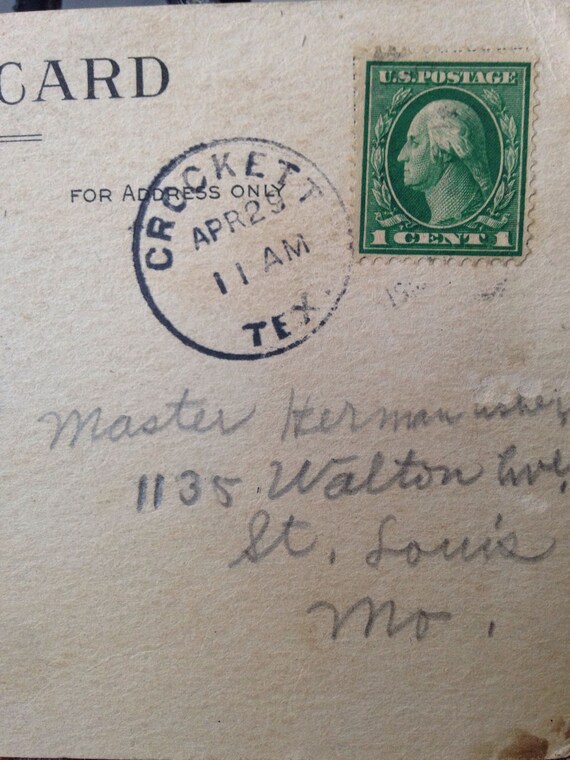 CARD
FOR ADDRESS ONLY
CROCKETT
APR 29
11 AM
TEX.
U.S. POSTAGE
1 CENT 1
Master Herman
1135 Walton Ave,
St. Louis
Mo.